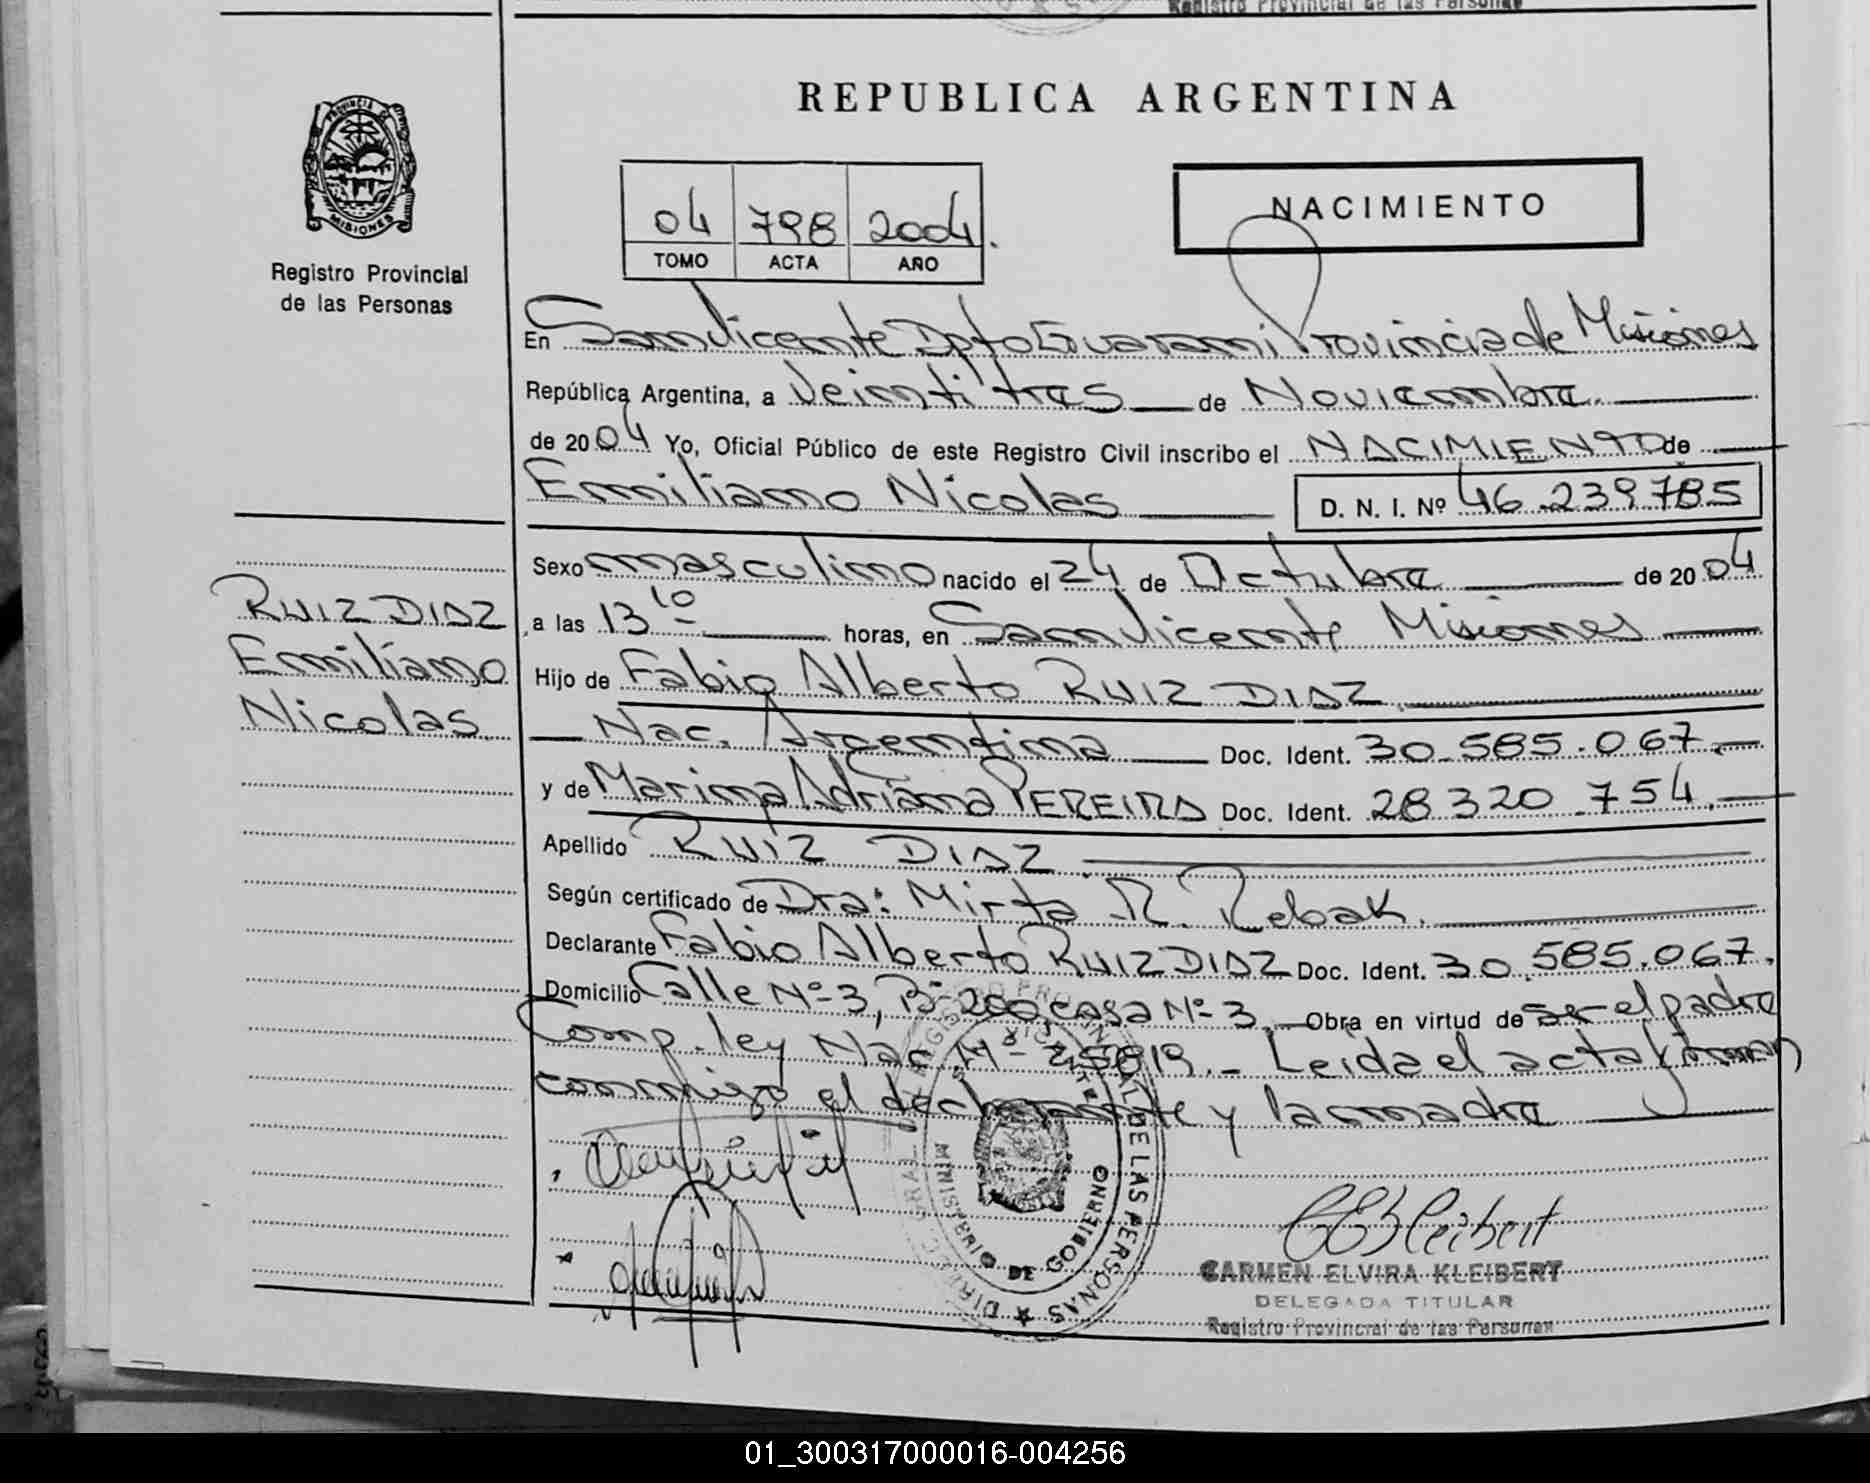 Registro Provincial de las Personas
REPUBLICA ARGENTINA
PROVINCIA DE
MISIONES
Registro Provincial
de las Personas
04 798 2004.
TOMO ACTA AÑO
NACIMIENTO
En San Vicente Dpto Guarani Provincia de Misiones
República Argentina, a Veintitres de Noviembre.
de 2004 Yo, Oficial Público de este Registro Civil inscribo el NACIMIENTO de
Emiliano Nicolas
D. N. I. Nº 46.239.785
Sexo masculino nacido el 24 de Octubre de 2004
a las 13 10 horas, en San Vicente Misiones
Hijo de Fabio Alberto RUIZ DIAZ
Nac. Argentina Doc. Ident. 30.585.067.
y de Marina Adriana PEREIRA Doc. Ident. 28.320.754.
Apellido RUIZ DIAZ
Según certificado de Dra: Mirta R. Rebak.
Declarante Fabio Alberto RUIZ DIAZ Doc. Ident. 30.585.067.
Domicilio Calle Nº 3, Bº 200, casa Nº 3, Obra en virtud de ser el padre
Comp. ley Nac. Nº 25819.- Leida el acta firman
conmigo el declarante y la madre
RUIZ DIAZ
Emiliano
Nicolas
MINISTERIO DE GOBIERNO
CARMEN ELVIRA KLEIBERT
DELEGADA TITULAR
Registro Provincial de las Personas
01_300317000016-004256